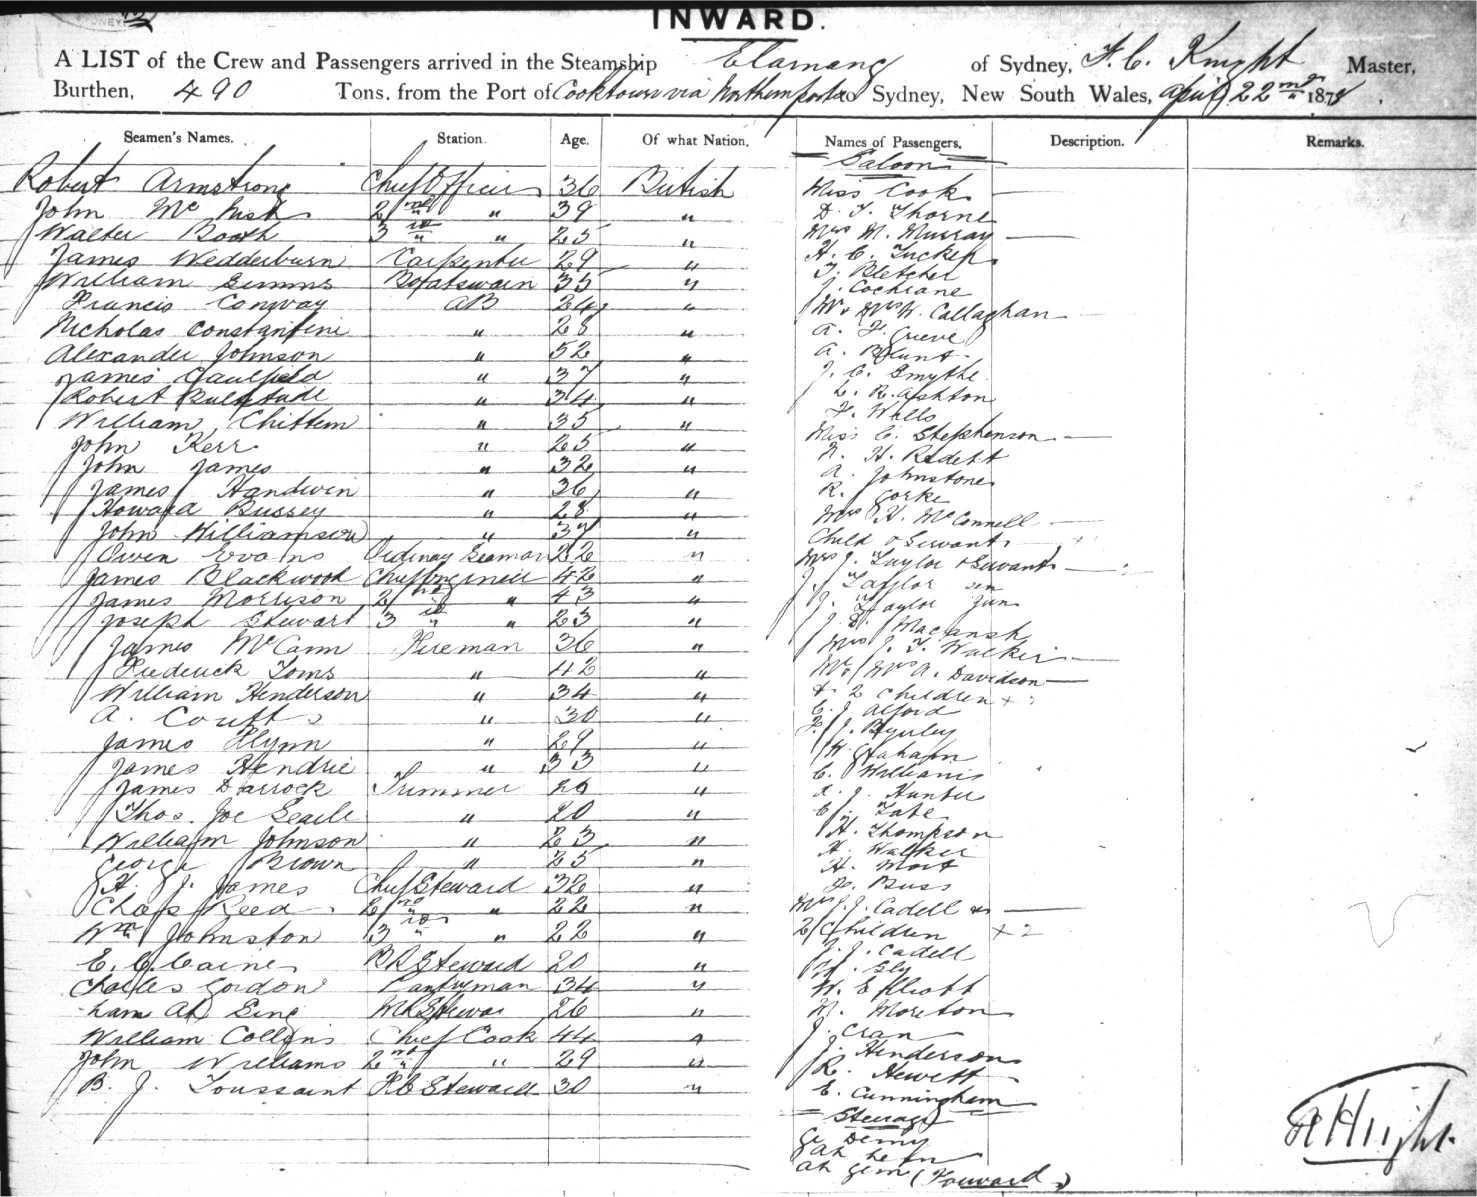 INWARD.
A LIST of the Crew and Passengers arrived in the Steamship Elamang of Sydney, F. C. Knight Master,
Burthen, 490 Tons, from the Port of Cooktown via Northern ports to Sydney, New South Wales, April 22nd 187
Seamen's Names. Station. Age. Of what Nation. Names of Passengers. Description. Remarks.
Saloon
Robert Armstrong Chief Officer 36 British Miss Cook
John Mc 2nd " 39 " D. T. Thorne
Walter Booth 3rd " 25 " Mrs M. Murray
James Wedderburn Carpenter 29 " H. C. Tucker
William Simms Boatswain 35 " T. Bletcher
Francis Conway AB 24 " J. Cochrane
Nicholas Constantine " 28 " Mr & Mrs W. Callaghan
Alexander Johnson " 52 " A. F. Grieve
James Caulfield " 37 " A. Blunt
Robert Bultitude " 34 " J. C. Smythe
William Chittem " 35 " L. R. Ashton
John Kerr " 25 " F. Wills
John James " 32 " Miss C. Stephenson
James Handwin " 36 " H.
Howard Bussey " 28 " A. Johnstone
John Williamson " 37 " R. Gorke
Owen Evans Ordinary Seaman 22 " Mrs H. McConnell
James Blackwood Chief Engineer 42 " Child & Servant
James Morrison 2nd " 43 " Mrs J. Taylor & Servant
Joseph Stewart 3rd " 23 " J. Taylor sen
James McCann Fireman 36 " J. Taylor Jun
Frederick Toms " 42 " J. D. Macansh
William Henderson " 34 " Mrs J. T. Walker
A. Coutts " 30 " Mr & Mrs A. Davidson
James Flynn " 29 " & 2 Children + 2
James Hendrie " 33 " C. J. Alford
James Darrock Trimmer 26 " F. J.
Thos. Joe Searle " 20 " W. Graham
William Johnson " 23 " C. Williams
George Brown " 25 " A. J. Hunter
H. J. James Chief Steward 32 " C. Tate
Chas Reed 2nd " 22 " H. Thompson
Wm Johnston 3rd " 22 " H. Walker
E. C. Caines BR Steward 20 " H. Mort
Charles Gordon Pantryman 34 " J. Buss
Ah Sing 26 " Mrs J. J. Cadell &
William Collins Chief Cook 44 " 2 Children + 2
John Williams 2nd " 29 " J. J. Cadell
B. J. Toussaint F.C Steward 30 " W. Sly
W. Elliott
M. Moreton
J. Cran
J. Henderson
R. Hewett
E. Cunningham
Steerage
G. Denny
Ah
Ah Gem (Forward)